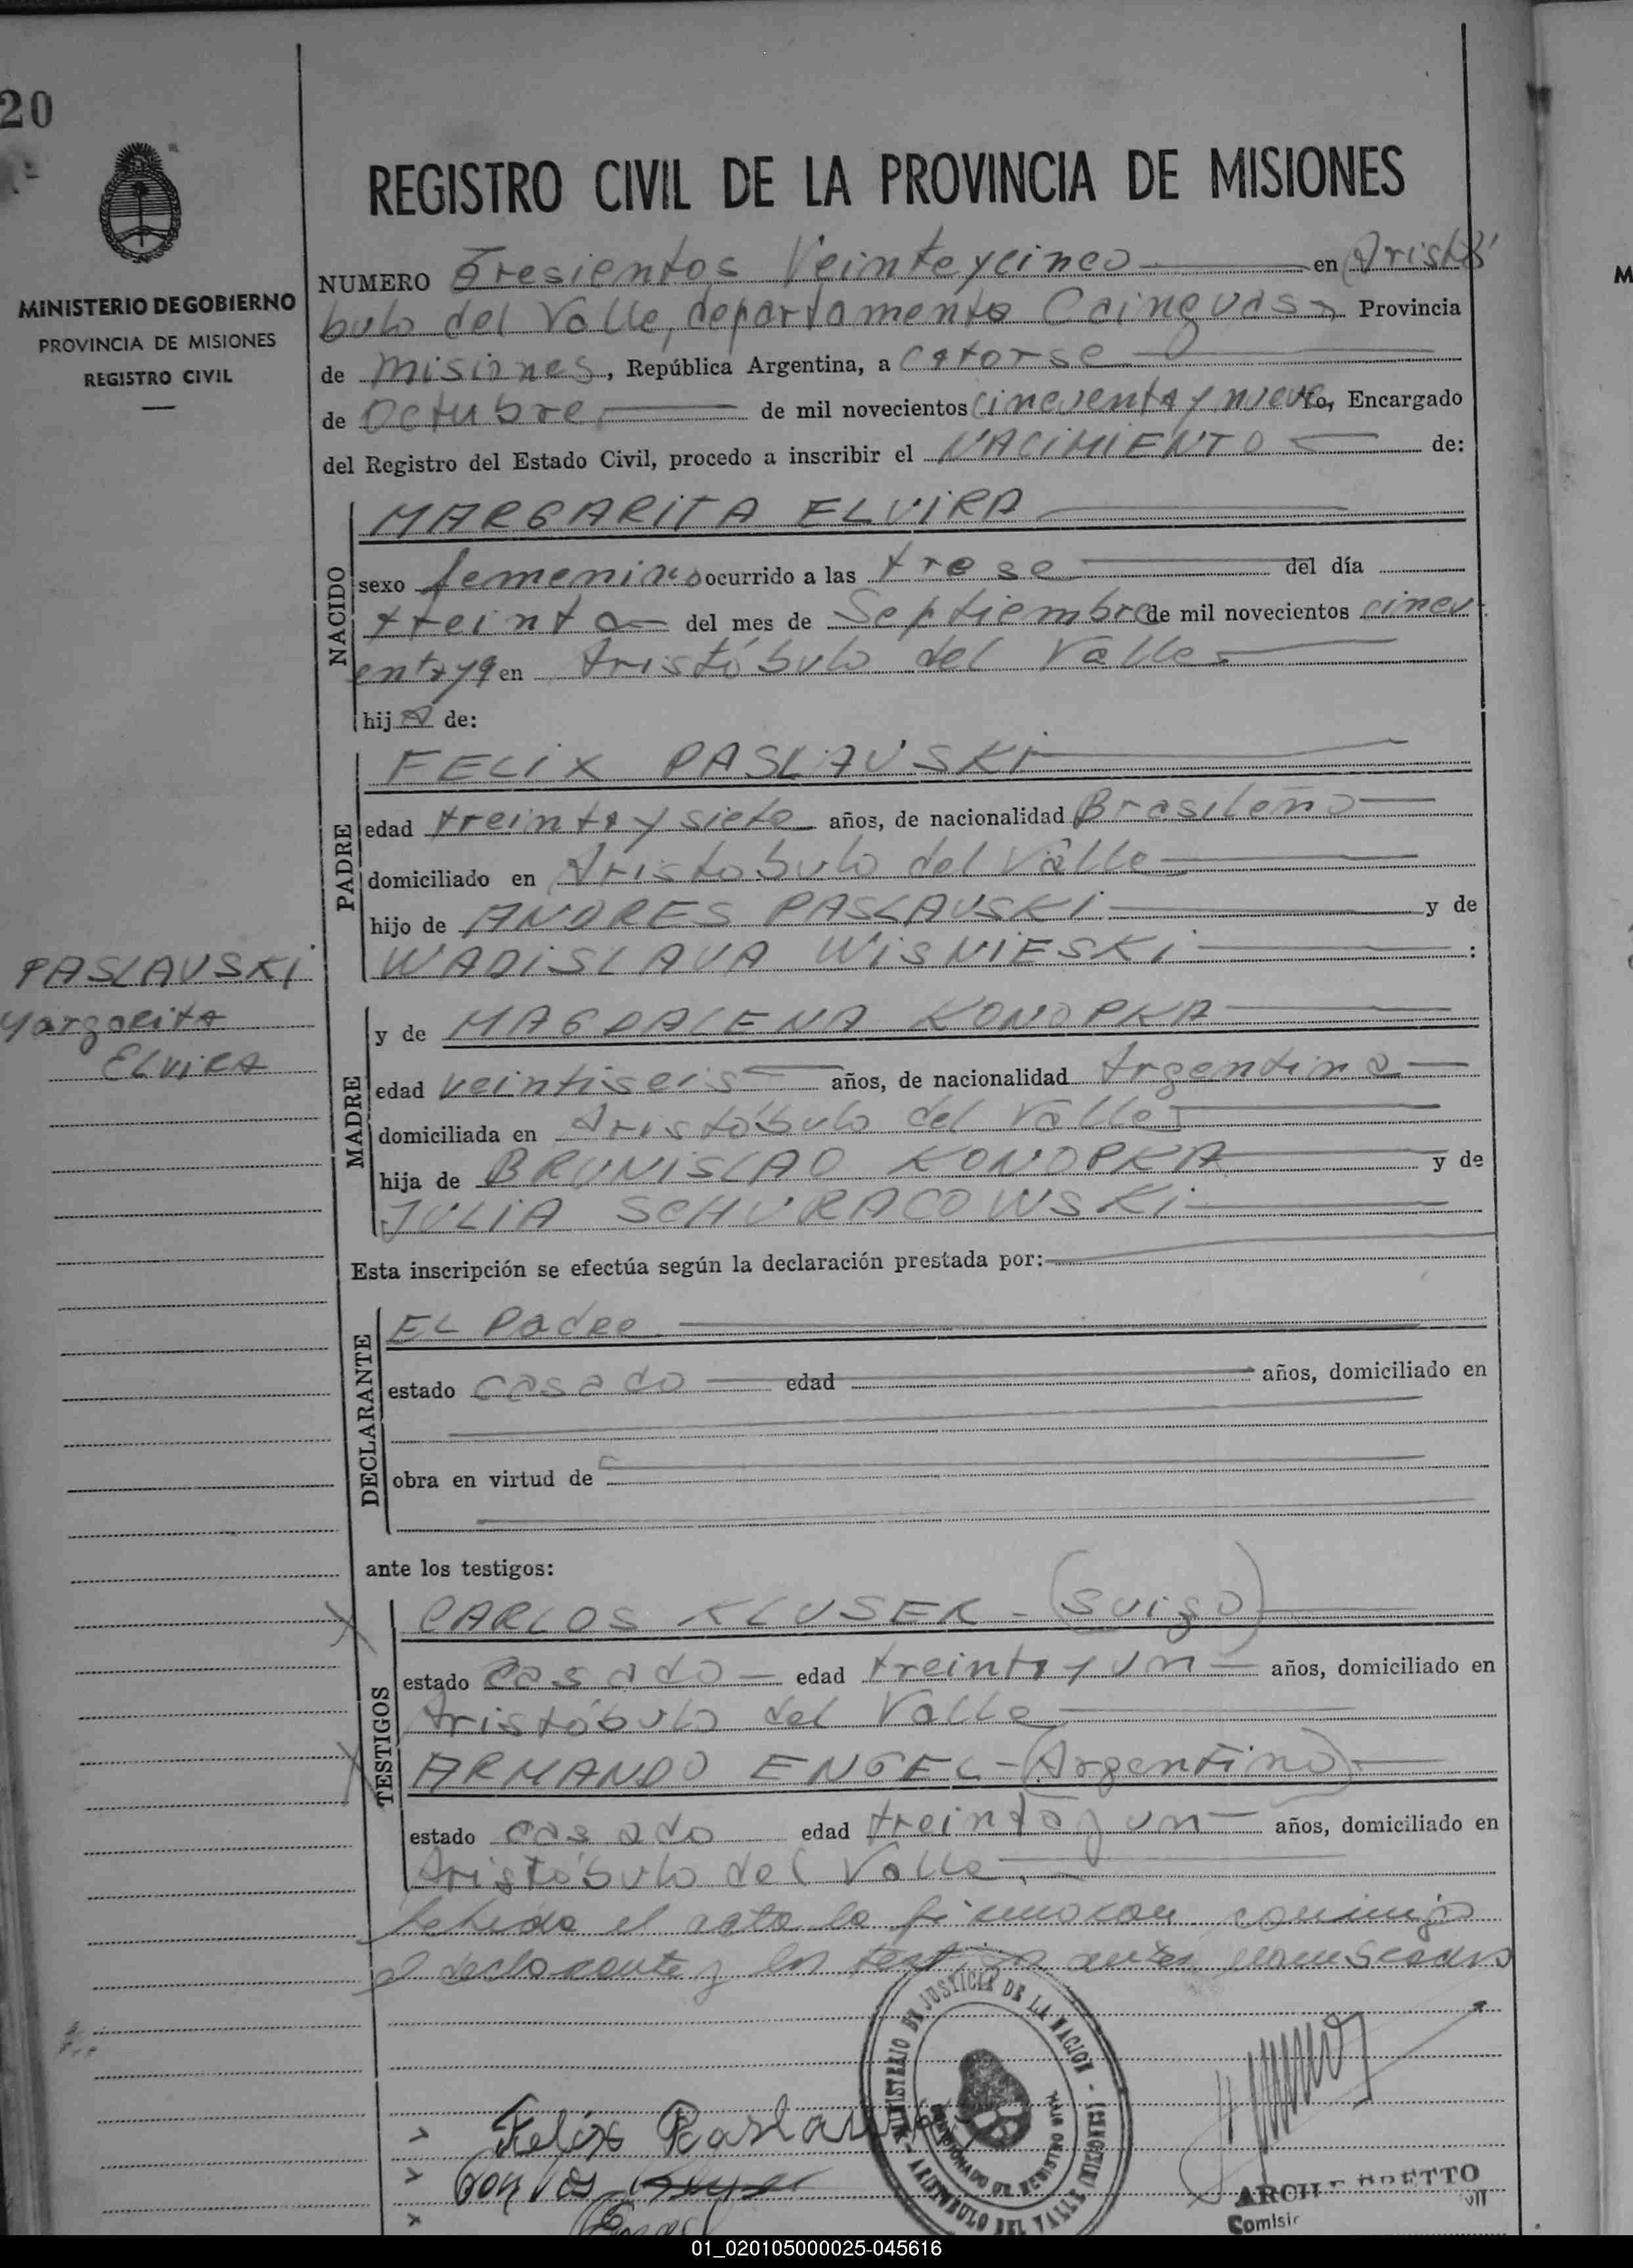 20
MINISTERIO DE GOBIERNO
PROVINCIA DE MISIONES
REGISTRO CIVIL
REGISTRO CIVIL DE LA PROVINCIA DE MISIONES
NUMERO Tresientos Veinteycinco en Aristó
bulo del Valle, departamento Cainguas Provincia
de Misiones, República Argentina, a Catorse
de Octubre de mil novecientos cincuenta y nueve Yo, Encargado
del Registro del Estado Civil, procedo a inscribir el NACIMIENTO de:
NACIDO
MARGARITA ELVIRA
sexo femenino ocurrido a las trese del día
treinta del mes de Septiembre de mil novecientos cincu
enta y 9 en Aristóbulo del Valle
hija de:
PADRE
FELIX PASLAVSKI
edad treinta y siete años, de nacionalidad Brasileño
domiciliado en Aristobulo del Valle
hijo de ANDRES PASLAVSKI y de
WADISLAVA WISNIESKI :
PASLAVSKI
Margarita
ELVIRA
MADRE
y de MAGDALENA KONOPKA
edad veintiseis años, de nacionalidad Argentina
domiciliada en Aristóbulo del Valle
hija de BRUNISLAO KONOPKA y de
JULIA SCHURACOWSKI
Esta inscripción se efectúa según la declaración prestada por:
DECLARANTE
EL Padre
estado casado edad años, domiciliado en
obra en virtud de
ante los testigos:
TESTIGOS
CARLOS KLUSER - (Suiso)
estado casado edad treinta y un años, domiciliado en
Aristóbulo del Valle
ARMANDO ENGEL - (Argentino)
estado casado edad treinta y un años, domiciliado en
Aristóbulo del Valle.
Leida el acta la firmaron conmigo
el declarante y los testigos antes
MINISTERIO DE JUSTICIA DE LA NACION - (MISIONES)
ARISTOBULO DEL VALLE
Felix Paslavski
Carlos Kluser
Engel
01_020105000025-045616